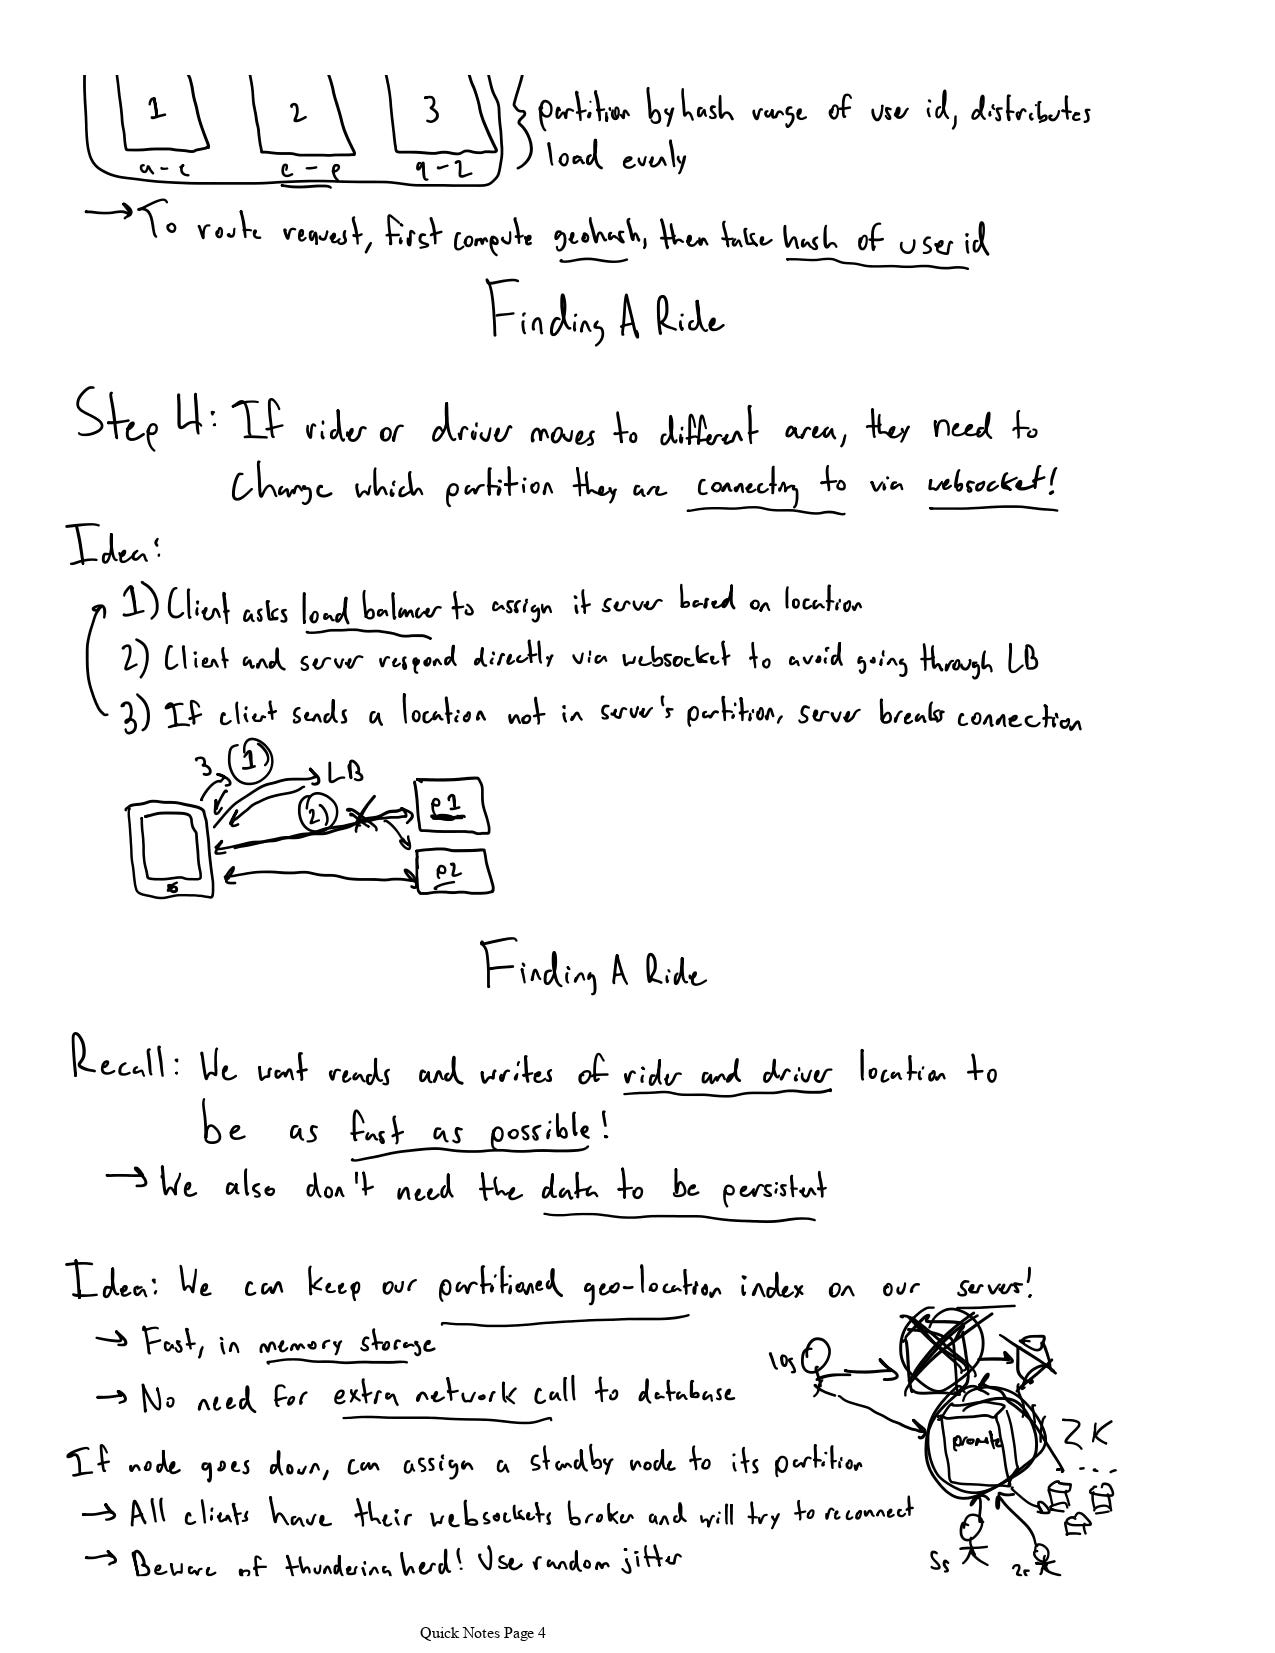 1 2 3 partition by hash range of user id, distributes
load evenly
a-c c-p q-z
→ To route request, first compute geohash, then take hash of user id
Finding A Ride
Step 4: If rider or driver moves to different area, they need to
change which partition they are connecting to via websocket!
Idea:
1) Client asks load balancer to assign it server based on location
2) Client and server respond directly via websocket to avoid going through LB
3) If client sends a location not in server's partition, server breaks connection
3 1) LB
2) p1
p2
Finding A Ride
Recall: We want reads and writes of rider and driver location to
be as fast as possible!
→ We also don't need the data to be persistent
Idea: We can keep our partitioned geo-location index on our servers!
→ Fast, in memory storage
10s
→ No need for extra network call to database
ZK
If node goes down, can assign a standby node to its partition
→ All clients have their websockets broken and will try to reconnect
→ Beware of thundering herd! Use random jitter
5s 2s
Quick Notes Page 4